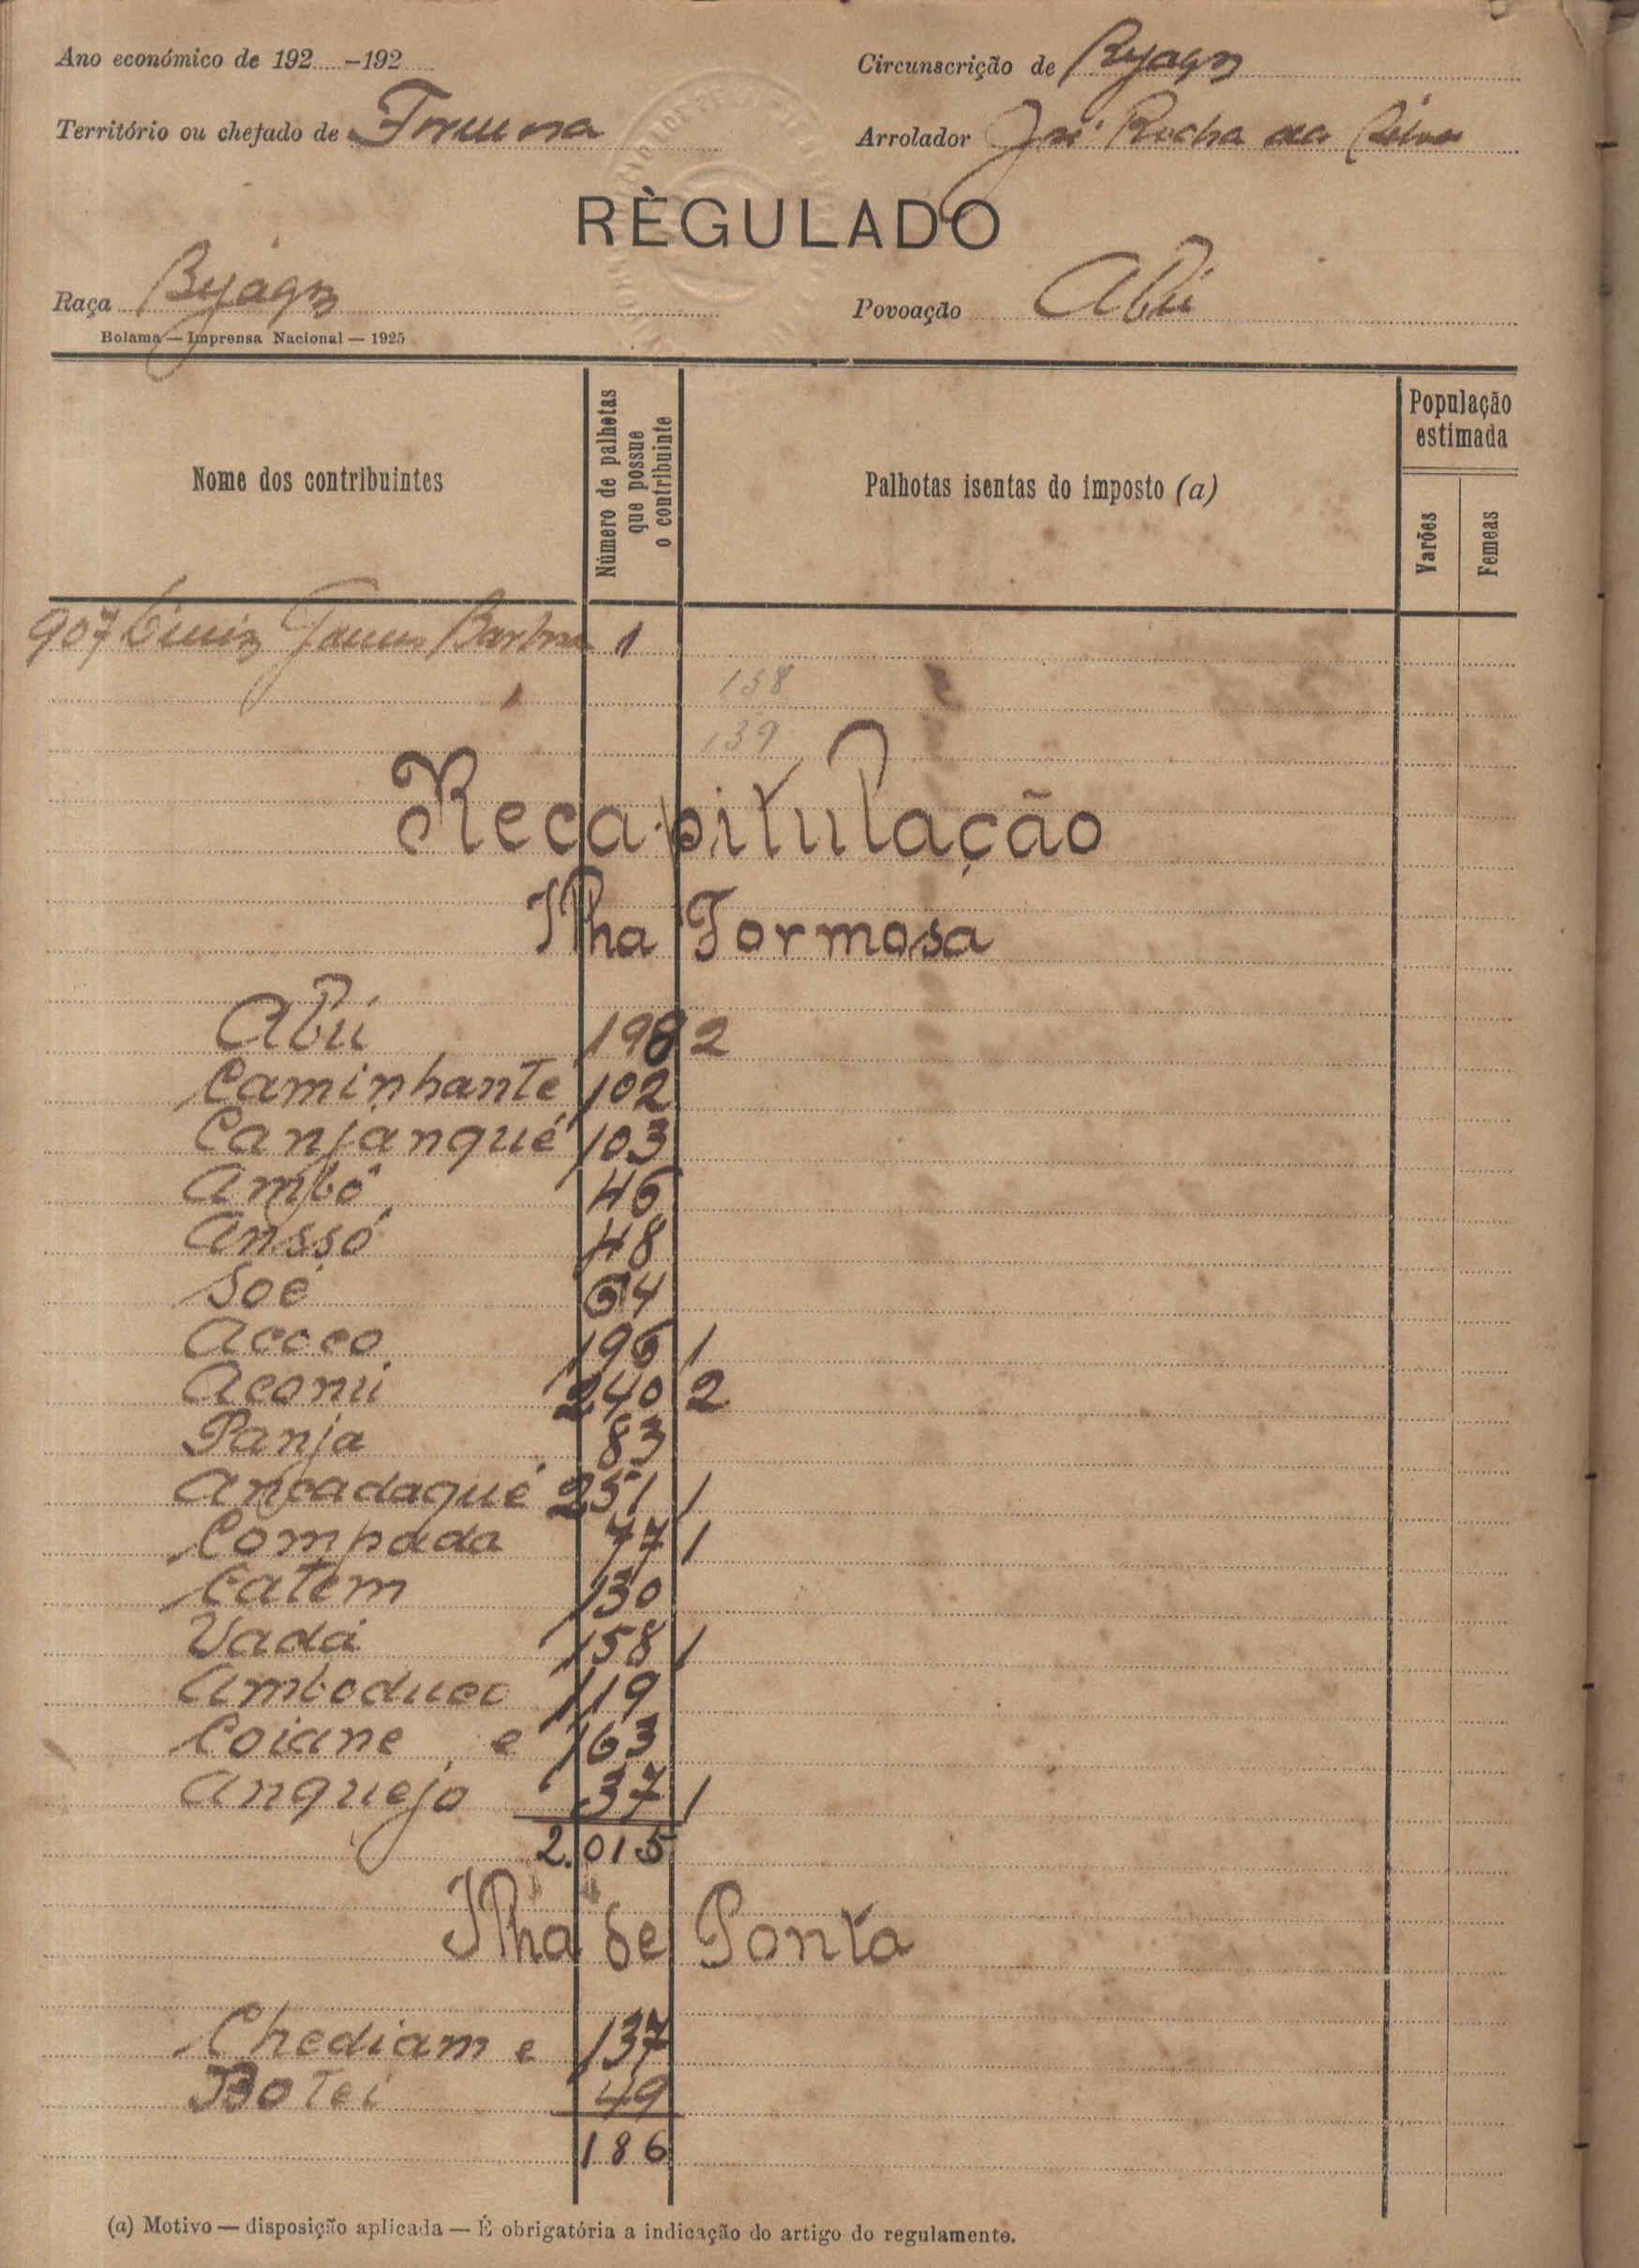 Ano económico de 192.....-192.....
Circunscrição de Byagoz
Território ou chefado de Formosa
Arrolador José Rocha da Silva
RÈGULADO
Raça Byagoz
Povoação Abú
Bolama — Imprensa Nacional — 1925
Nome dos contribuintes
Número de palhotas que possue o contribuinte
Palhotas isentas do imposto (a)
População estimada
Varões
Femeas
907 Gomes Barbosa 1
1
138
139
Recapitulação
Ilha Formosa
Abú 198 2
Caminhante 102
Canjanqué 103
Ambô 46
Anssó 48
Soé 64
Acoco 196 1
Aconú 240 2
Panja 83
Ancadaqué 251 1
Compada 77 1
Catem 130
Vadá 158 1
Amboduco 119
Coiane e 163
Anquejo 37 1
2.015
Ilha de Ponta
Chediam e 137
Botei 49
186
(a) Motivo — disposição aplicada — É obrigatória a indicação do artigo do regulamento.